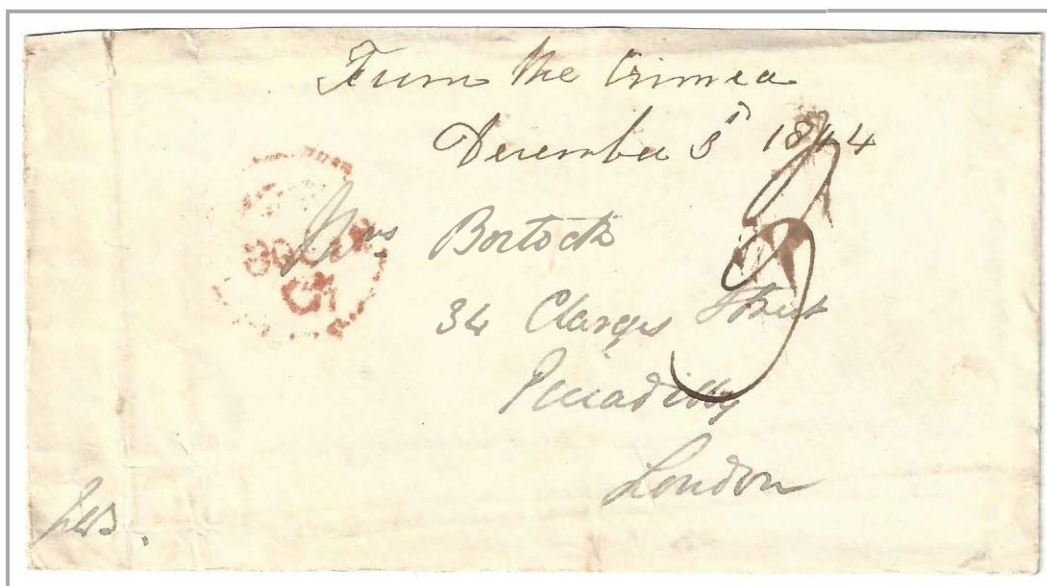 From the Crimea
December 3d 1844
Mrs Bostock
34 Clarges Street
Piccadilly
London
3